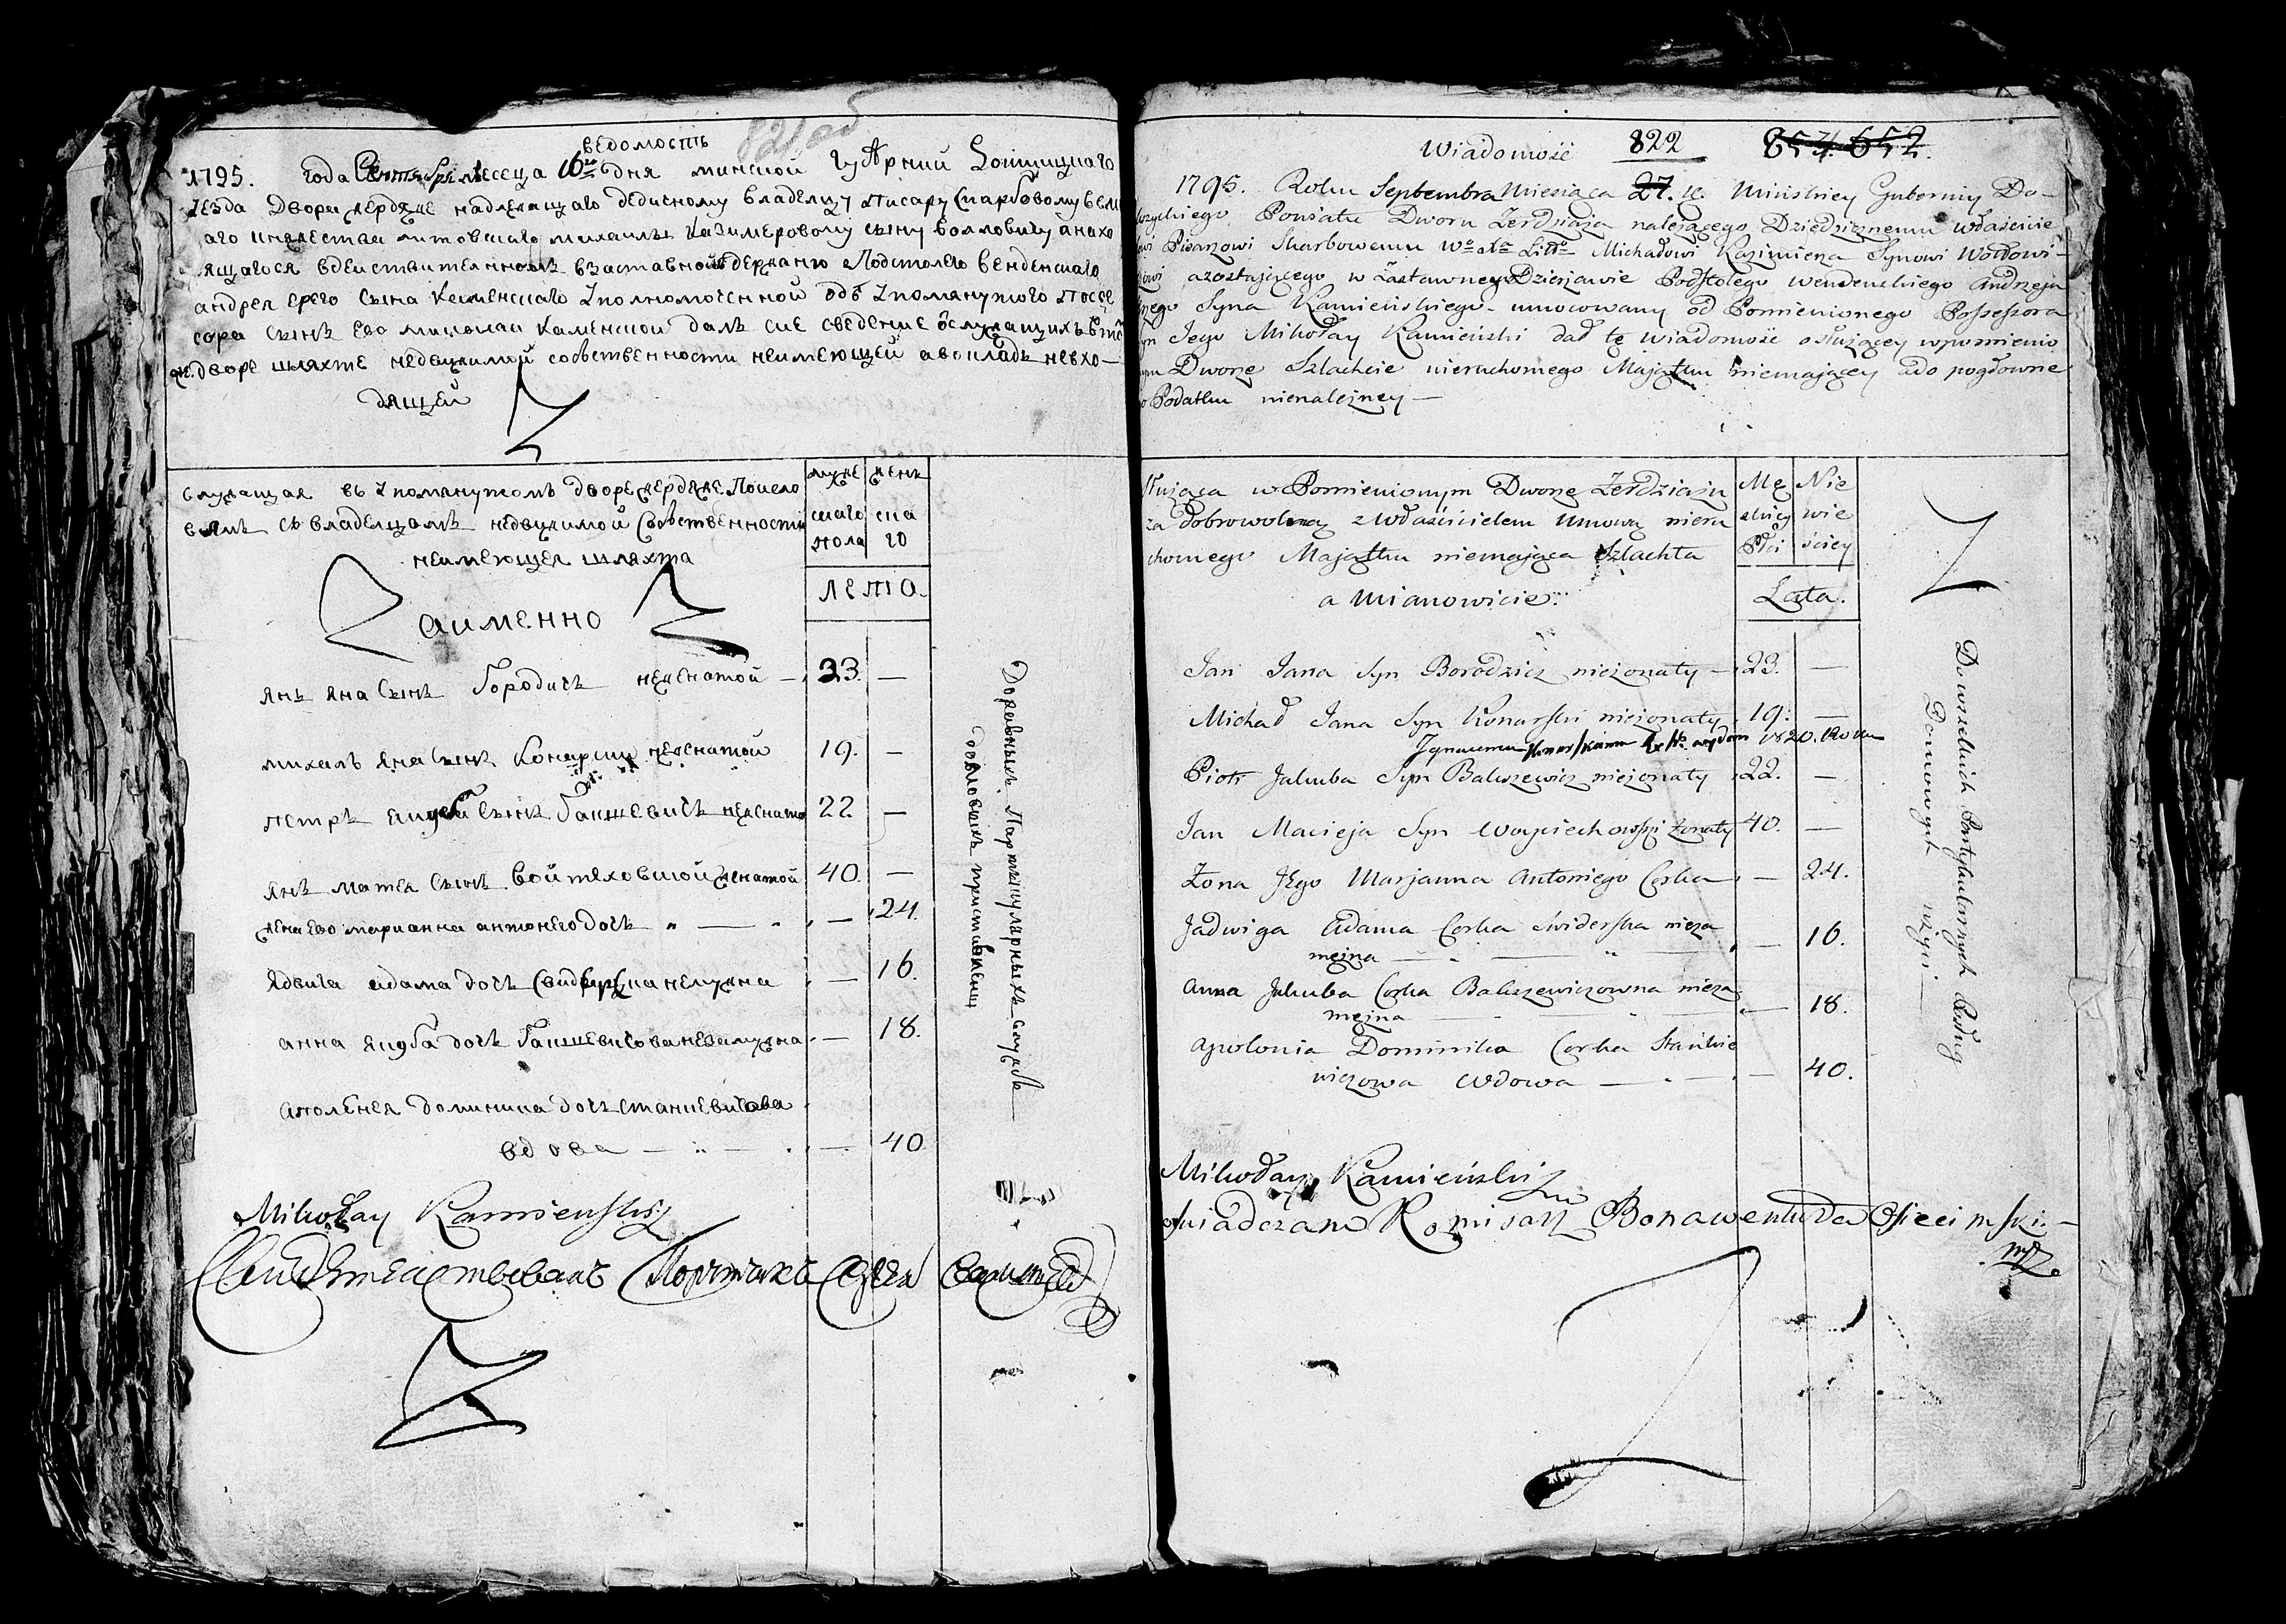 ведомость
1795. года Сентября месеца 16го дня минской губарний Докшицкаго
уезда двора жердяже надлежащаго дедичному владелцу писару скарбовому вели
аго княжества литовского михаилы казимеровому сыну волловичу анахо
ящагося вдействителномъ взаставномъ держанию Подстолего венденскаго
андрея ерего сына каменскаго уполномоченной одъ упомянутого посе
сора сынъ его миколаи каменской далъ сие сведение ослужащихъ въ
дворе шляхте недвижимой собственности неимеющей авокладъ невхо—
дящей
служащая въ упомянутомъ дворе жердяже по усло
виямъ съ владелцамъ недвижимой собственности
неимеющея шляхта
аименно
муже скаго пола
женъ ска го
лета.
янъ яна сынъ Бородичъ нежонатой — 23. —
михалъ яна сынъ Конарски неженатой 19. —
петръ якуба сынъ Бакшевичъ неженато 22 —
янъ матея сынъ войтеховской женатой 40. —
жена его марианна антонего дочъ " — — 24.
ядвига адама дочъ свидерска немужна — 16.
анна якуба дочъ Бакшевичова незамужна — 18.
аполения доминика дочъ станкевичова
вдова — " — — 40
Доразныхъ партыкулярныхъ службъ
домовыхъ приставлены
Mikołay Kamienski
Свидетельствовалъ
822 854. 652.
Wiadomość
1795. Roku Septembra Miesiąca 27. 16. Minskiey Gubernij Do-
kszyckiego Powiatu Dworu Żerdziaża należącego Dziedzicznemu właścicie
owi Pisarzowi Skarbowemu Wo Xa Litto Michałowi Kazimierza Synowi Wołłowi-
czowi azostającego w Zastawney Dzierżawie Podstolego wendenskiego Andrzeja
Syna Kamieńskiego. umocowany od Pomienionego Possessora
Syn Jego Mikołay Kamieński dał tę wiadomość osłużącey wpomienio
nym Dworze Szlachcie nieruchomego Majątku niemającey ado pogłowne
go Podatku nienależney —
służąca w Pomienionym Dworze Żerdziażu
za dobrowolną z właścicielem umową nieru
chomego Majątku niemająca Szlachta
a mianowicie:
Mę zkiey Płci
Nie wie ściey
Lata.
Jan Jana Syn Borodzicz nieżonaty — 23. —
Michał Jana Syn Konarski nieżonaty 19. —
1820. Roku
Piotr Jakuba Syn Bakszewicz nieżonaty 22. —
Jan Macieja Syn Woyciechowski żonaty 40. —
Żona Jego Marjanna Antoniego Corka — 24.
Jadwiga Adama Corka Swiderska nieza
mężna — 16.
Anna Jakuba Corka Bakszewiczowna nieza
mężna — 18.
Apolonia Dominika Corka Stankie
wiczowa Wdowa — 40.
Do wszelkich Partykularnych Posług
Domowych użyci —
Mikołay Kamieński
oświadczam Komisarz Bonawentura Osiecimski —
mp.